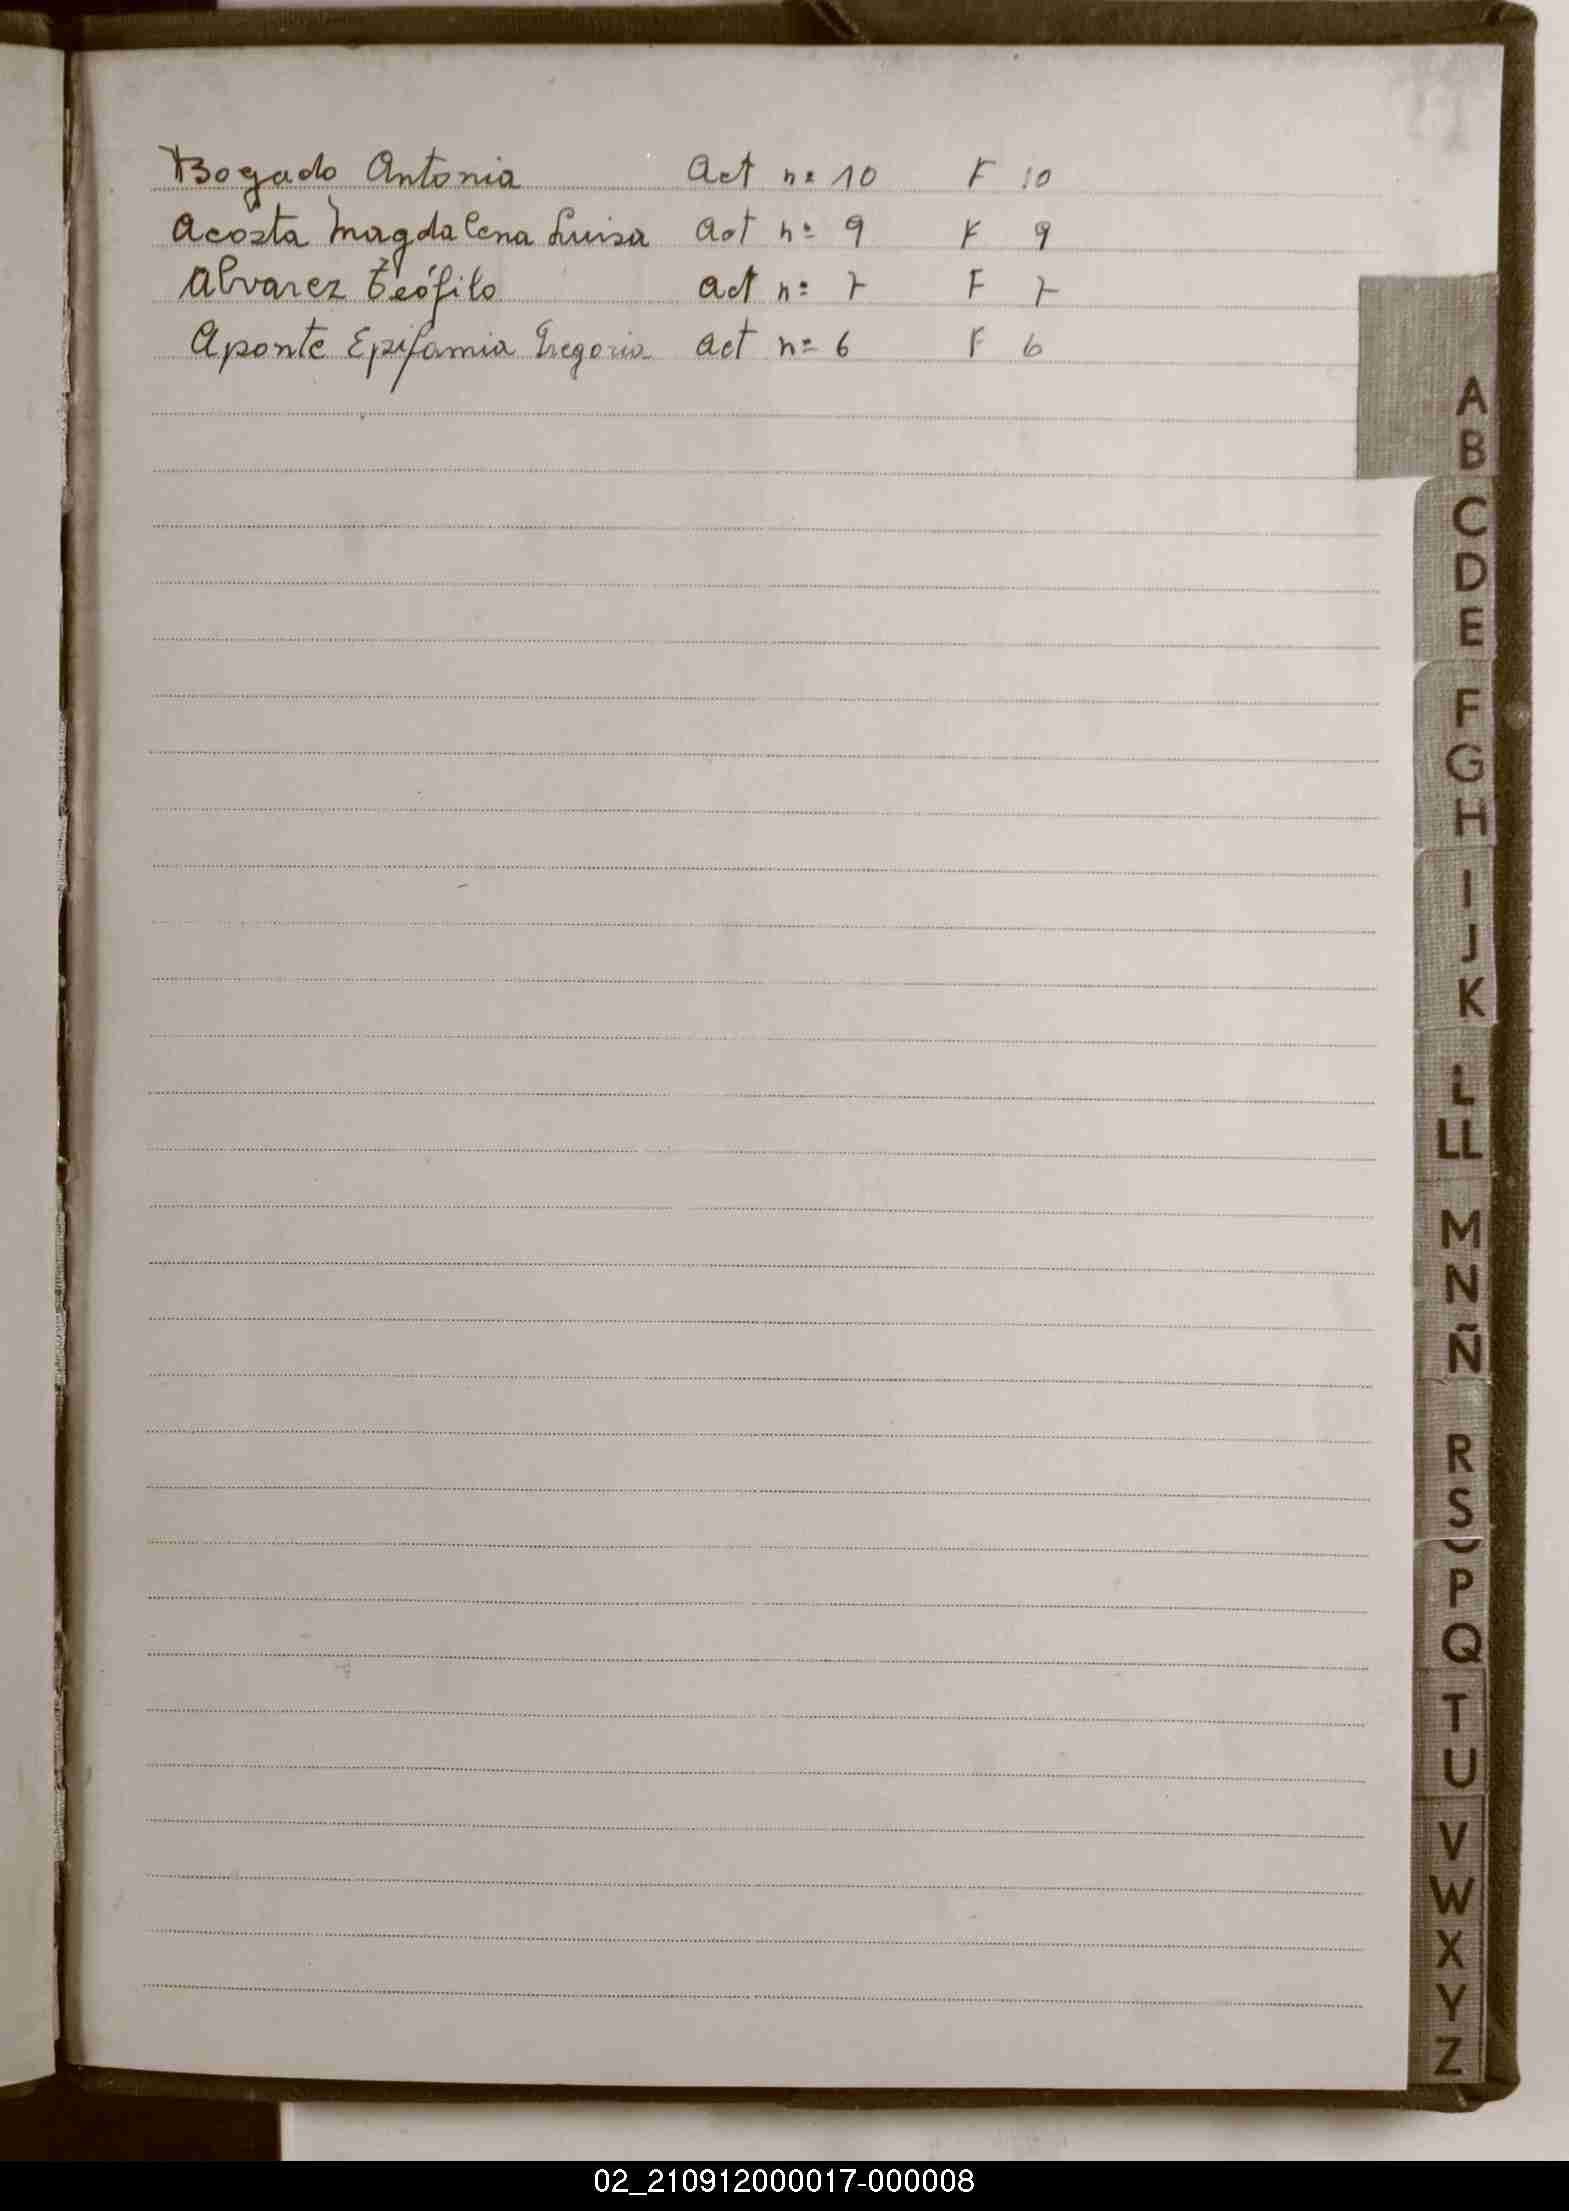 Bogado Antonia Act nº 10 F 10
Acosta Magdalena Luisa Act nº 9 F 9
Alvarez Teófilo Act nº 7 F 7
Aponte Epifamia Gregoria Act nº 6 F 6
A
B
C
D
E
F
G
H
I
J
K
L
LL
M
N
Ñ
R
S
P
Q
T
U
V
W
X
Y
Z
02_210912000017-000008